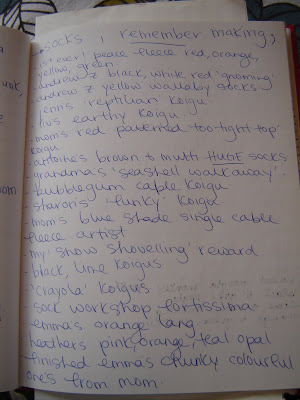 socks i remember making;
- 1st ever! peace fleece red, orange,
yellow, green.
- andrew z black, white red 'gnoming'
- andrew z yellow wallaby socks
- jenns reptilian koigu
- livs earthy koigu
- moms red patterned 'too-tight top'
koigu
- antoines brown + multi HUGE socks
- grandmas 'seashell walkaway'.
- bubblegum cable koigu
- sharons 'funky' koigu
- moms blue shade single cable
fleece artist
- my 'snow shovelling' reward
- black, lime koigus
- 'crayola' koigus
- sock workshop fortissima
- emmas orange lang
- heathers pink, orange, teal opal
- finished emmas chunky colourful
ones from mom.